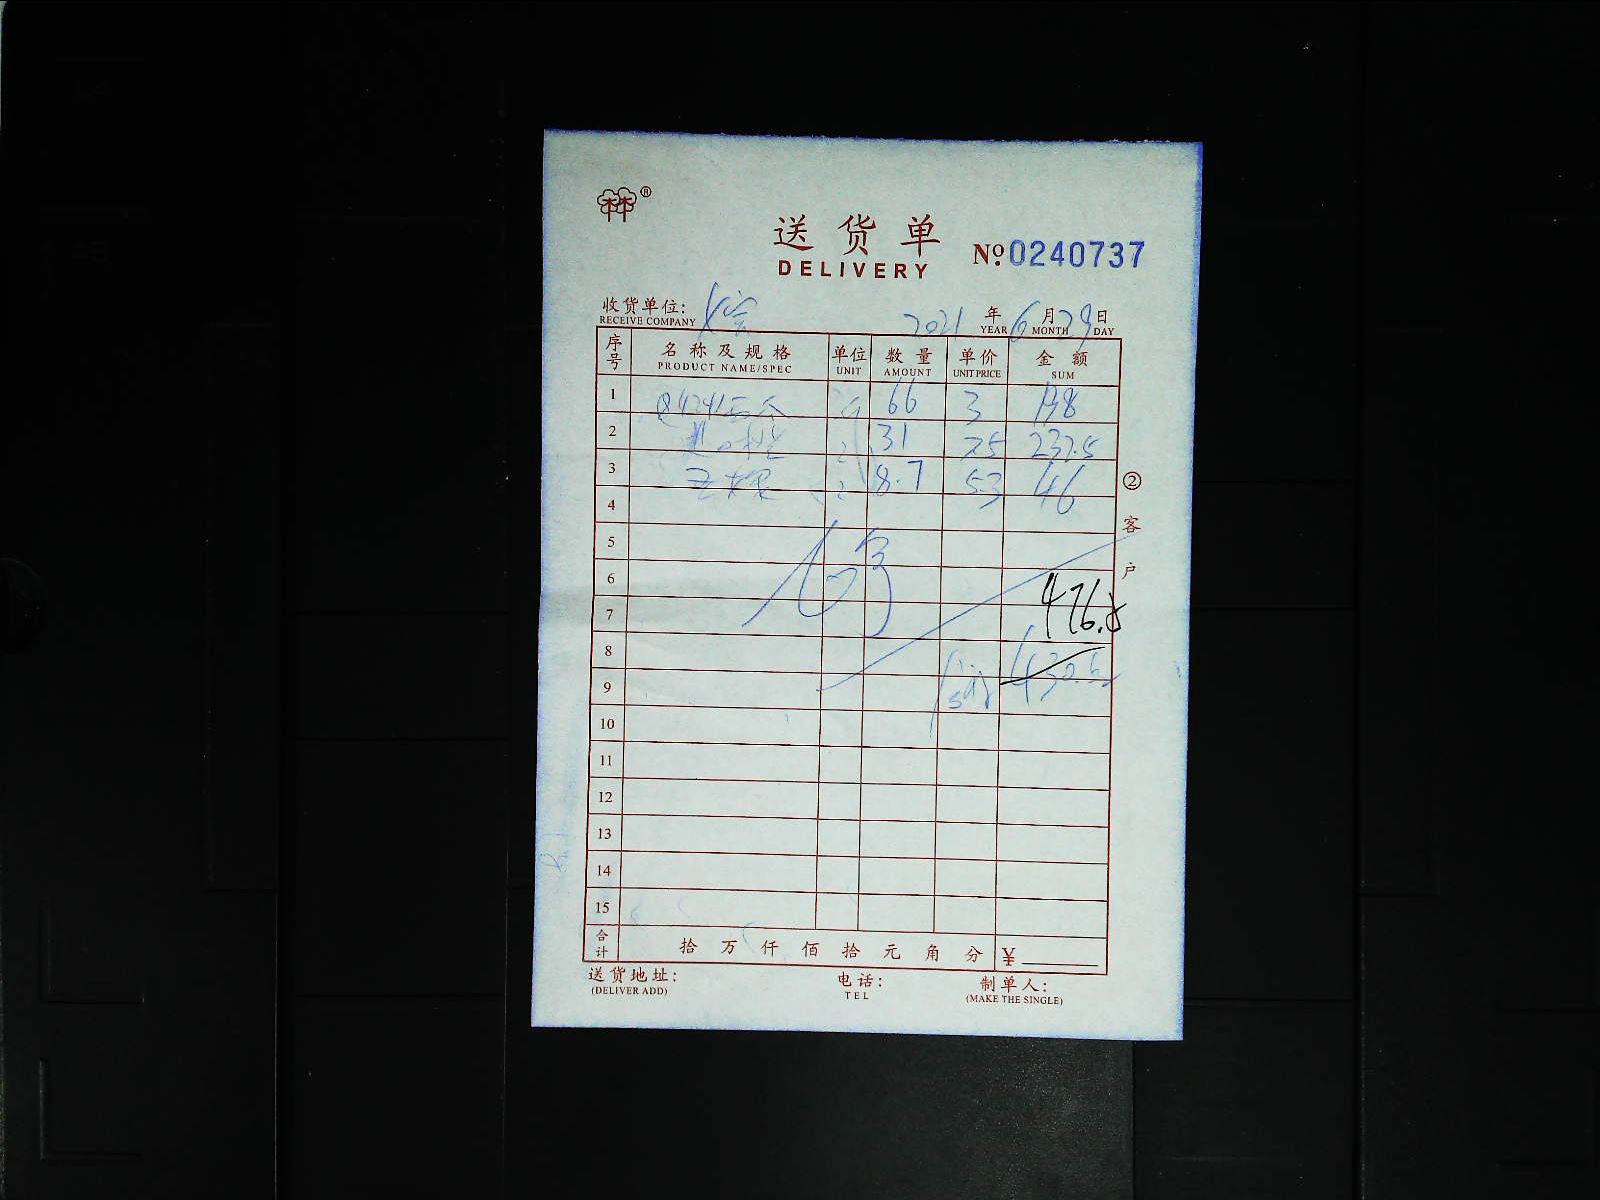 ®
送货单
DELIVERY
Nº 0240737
收货单位:
RECEIVE COMPANY
2021 年 6 月 29 日
YEAR MONTH DAY
序号 名称及规格 单位 数量 单价 金额
PRODUCT NAME/SPEC UNIT AMOUNT UNIT PRICE SUM
1 66 3 198
2 31 75 232.5
3 8.7 53 46
4
5
6
7 476.5
8
9 430.5
10
11
12
13
14
15
②客户
合计 拾 万 仟 佰 拾 元 角 分 ¥
送货地址: 电话: 制单人:
(DELIVER ADD) TEL (MAKE THE SINGLE)